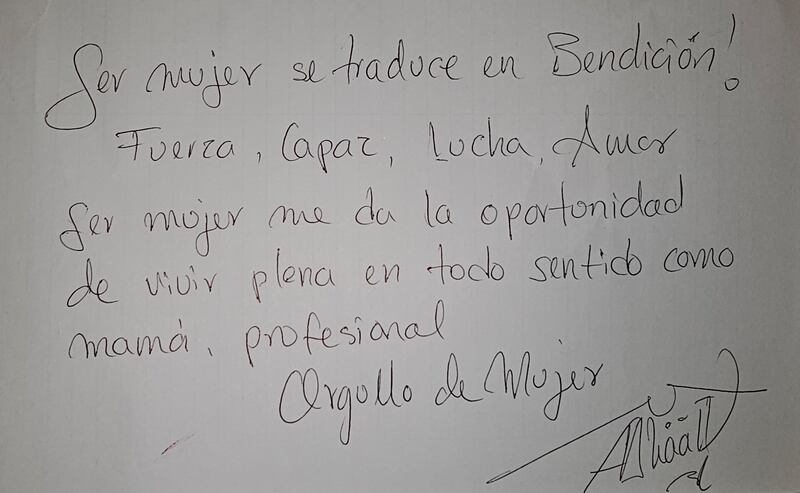 Ser mujer se traduce en Bendición!
Fuerza, Capaz, Lucha, Amor
Ser mujer me da la oportunidad
de vivir plena en todo sentido como
mamá, profesional
Orgullo de Mujer